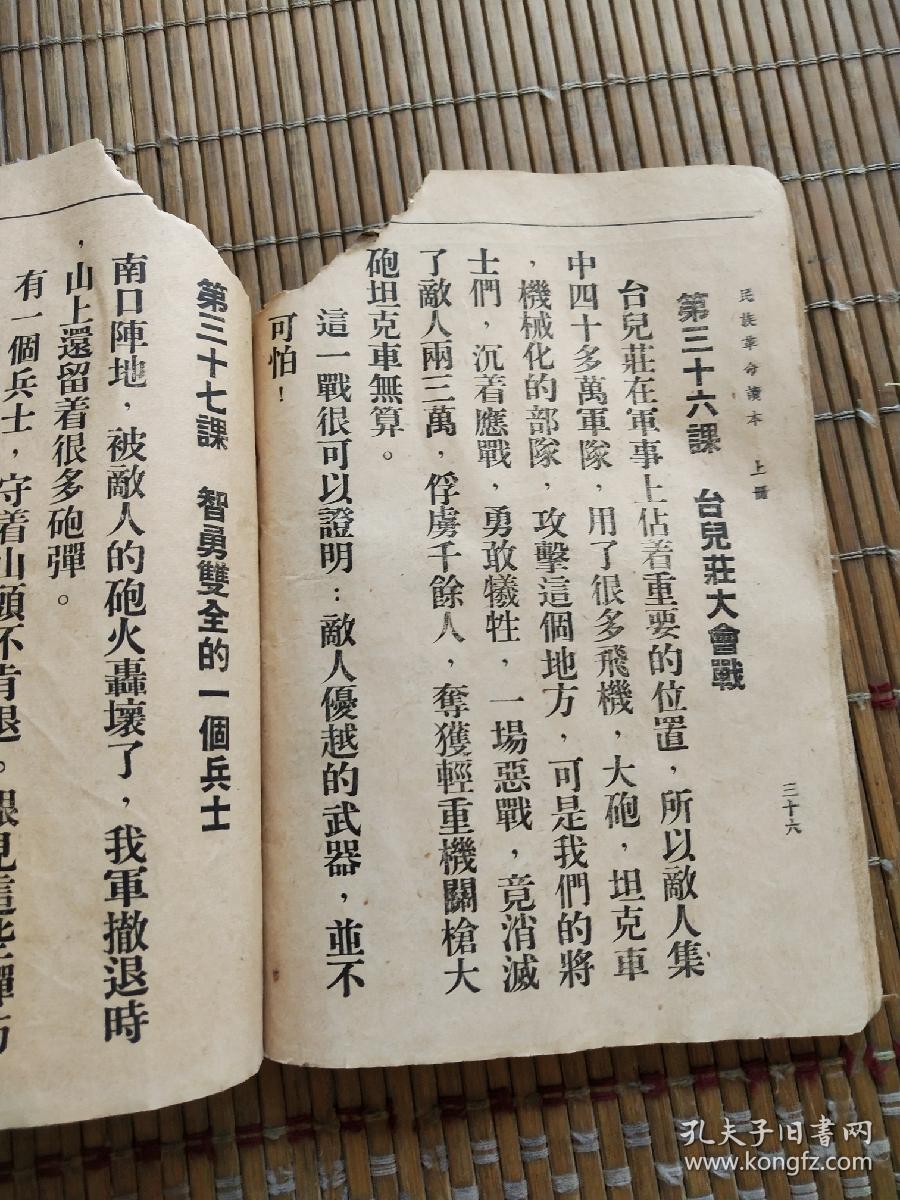 民族革命讀本 上冊
三十六
第三十六課 台兒莊大會戰
台兒莊在軍事上佔着重要的位置，所以敵人集
中四十多萬軍隊，用了很多飛機，大砲，坦克車
，機械化的部隊，攻擊這個地方，可是我們的將
士們，沉着應戰，勇敢犧牲，一場惡戰，竟消滅
了敵人兩三萬，俘虜千餘人，奪獲輕重機關槍大
砲坦克車無算。
這一戰很可以證明：敵人優越的武器，並不
可怕！
第三十七課 智勇雙全的一個兵士
南口陣地，被敵人的砲火轟壞了，我軍撤退時
，山上還留着很多砲彈。
有一個兵士，守着山頭不肯退。眼見這些彈
孔夫子旧书网
www.kongfz.com